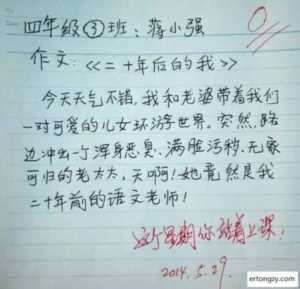 四年级③班:蒋小强
0
作文:<<二十年后的我>>
今天天气不错,我和老婆带着我们
一对可爱的儿女环游世界。突然,路
边冲出一个浑身恶臭、满脸污秽、无家
可归的老太太,天啊!她竟然是我
二十年前的语文老师!
这个星期你站着上课!
2014.5.29.
www.ertongzy.com